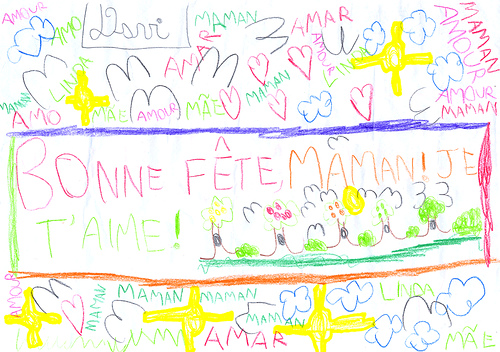 AMOUR
AMO
Davi
MAMAN
AMAR
MAMAN
AMOUR
AMAR
AMOUR
LINDA
LINDA
MAMAN
AMO
MÃE
AMOUR
MÃE
MAMAN
AMOUR
MAMAN
BONNE FÊTE, MAMAN! JE
T'AIME!
AMOUR
MAMAN
MAMAN
MAMAN
LINDA
MAMAN
AMAR
MÃE